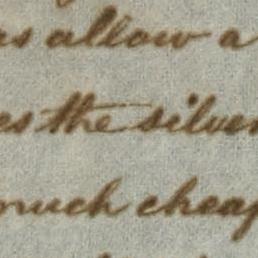 as allow a
es the silver
much cheap